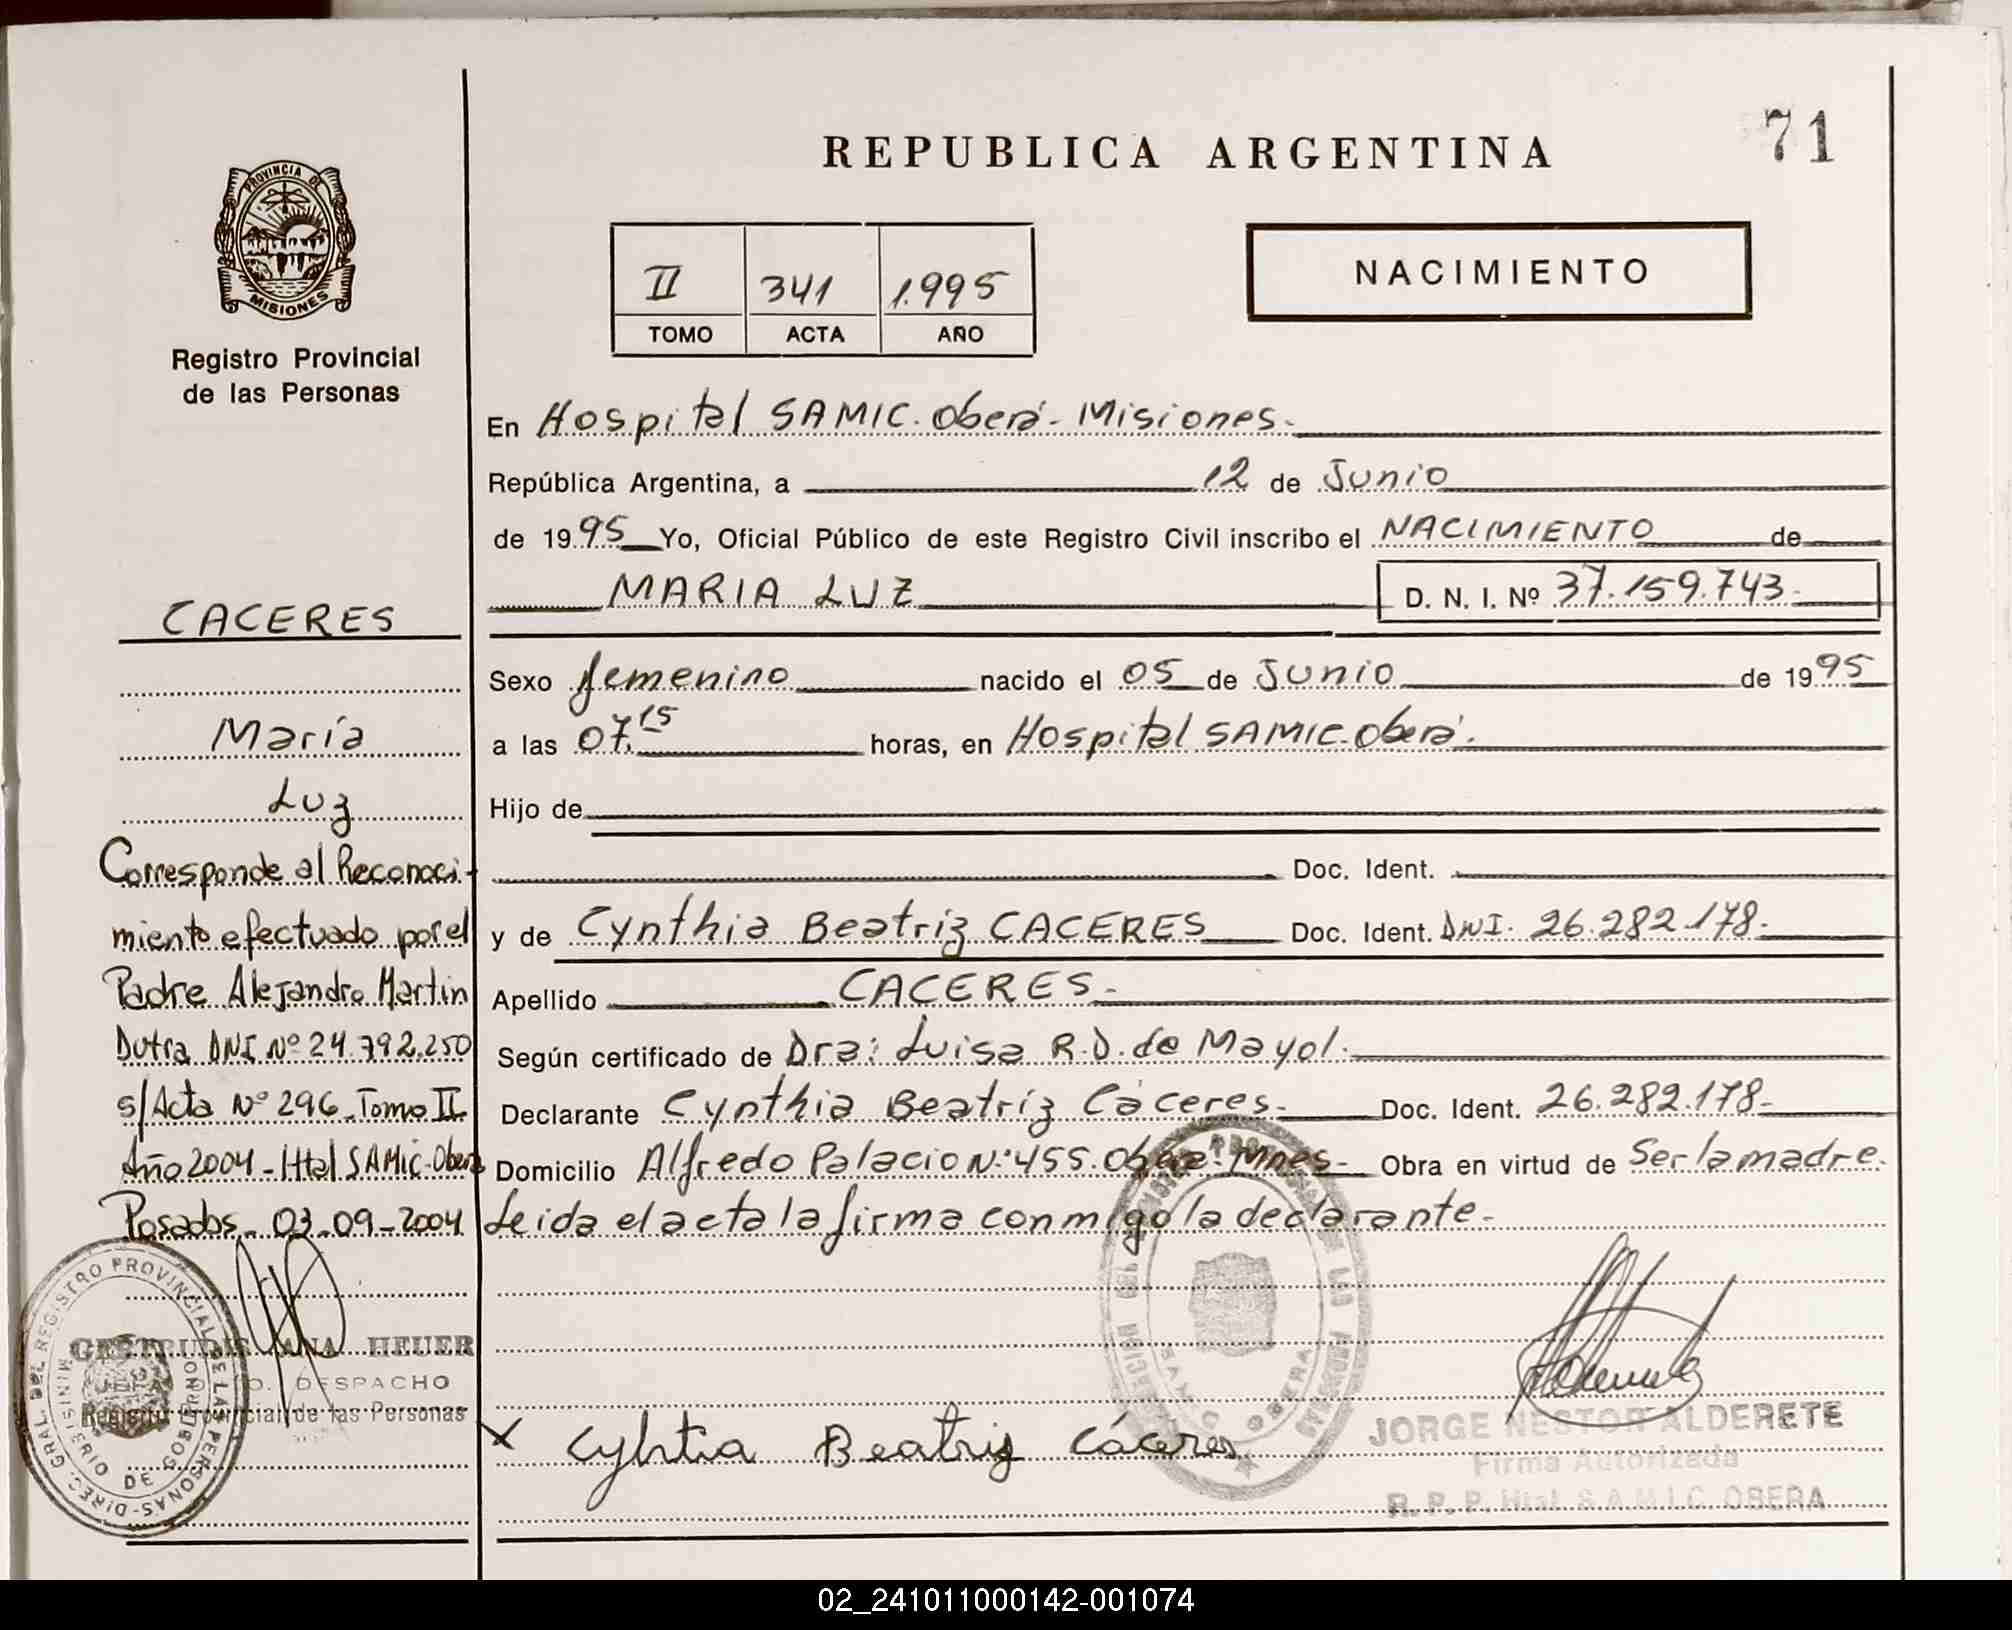 REPUBLICA ARGENTINA
71
PROVINCIA DE
MISIONES
Registro Provincial
de las Personas
II 341 1.995
TOMO ACTA AÑO
NACIMIENTO
En Hospital SAMIC. Oberá - Misiones.
República Argentina, a 12 de Junio
de 1995 Yo, Oficial Público de este Registro Civil inscribo el NACIMIENTO de
MARIA LUZ D. N. I. Nº 37.159.743.
Sexo femenino nacido el 05 de Junio de 1995
a las 07.15 horas, en Hospital SAMIC. Oberá.
Hijo de
Doc. Ident.
y de Cynthia Beatriz CACERES Doc. Ident. DNI. 26.282.178.
Apellido CACERES.
Según certificado de Dra: Luisa R.D. de Mayol.
Declarante Cynthia Beatriz Cáceres. Doc. Ident. 26.282.178.
Domicilio Alfredo Palacio N:455. Oberá. Mnes. Obra en virtud de Ser la madre.
Leida el acta la firma conmigo la declarante.
CACERES
María
Luz
Corresponde al Reconoci-
miento efectuado por el
Padre Alejandro Martin
Dutra DNI Nº 24.792.250
s/Acta Nº 296 Tomo II
Año 2004 - Htal SAMIC - Oberá
Posadas 03-09-2004
GERTRUDIS ANA HEUER
DESPACHO
Registro Provincial de las Personas
DIREC. GRAL. DEL REGISTRO PROVINCIAL DE LAS PERSONAS
MINISTERIO DE GOBIERNO
x Cyhtia Beatriz Cáceres
OBERA
JORGE NESTOR ALDERETE
Firma Autorizada
R. P. P. Htal. S.A.M.I.C. OBERA
02_241011000142-001074